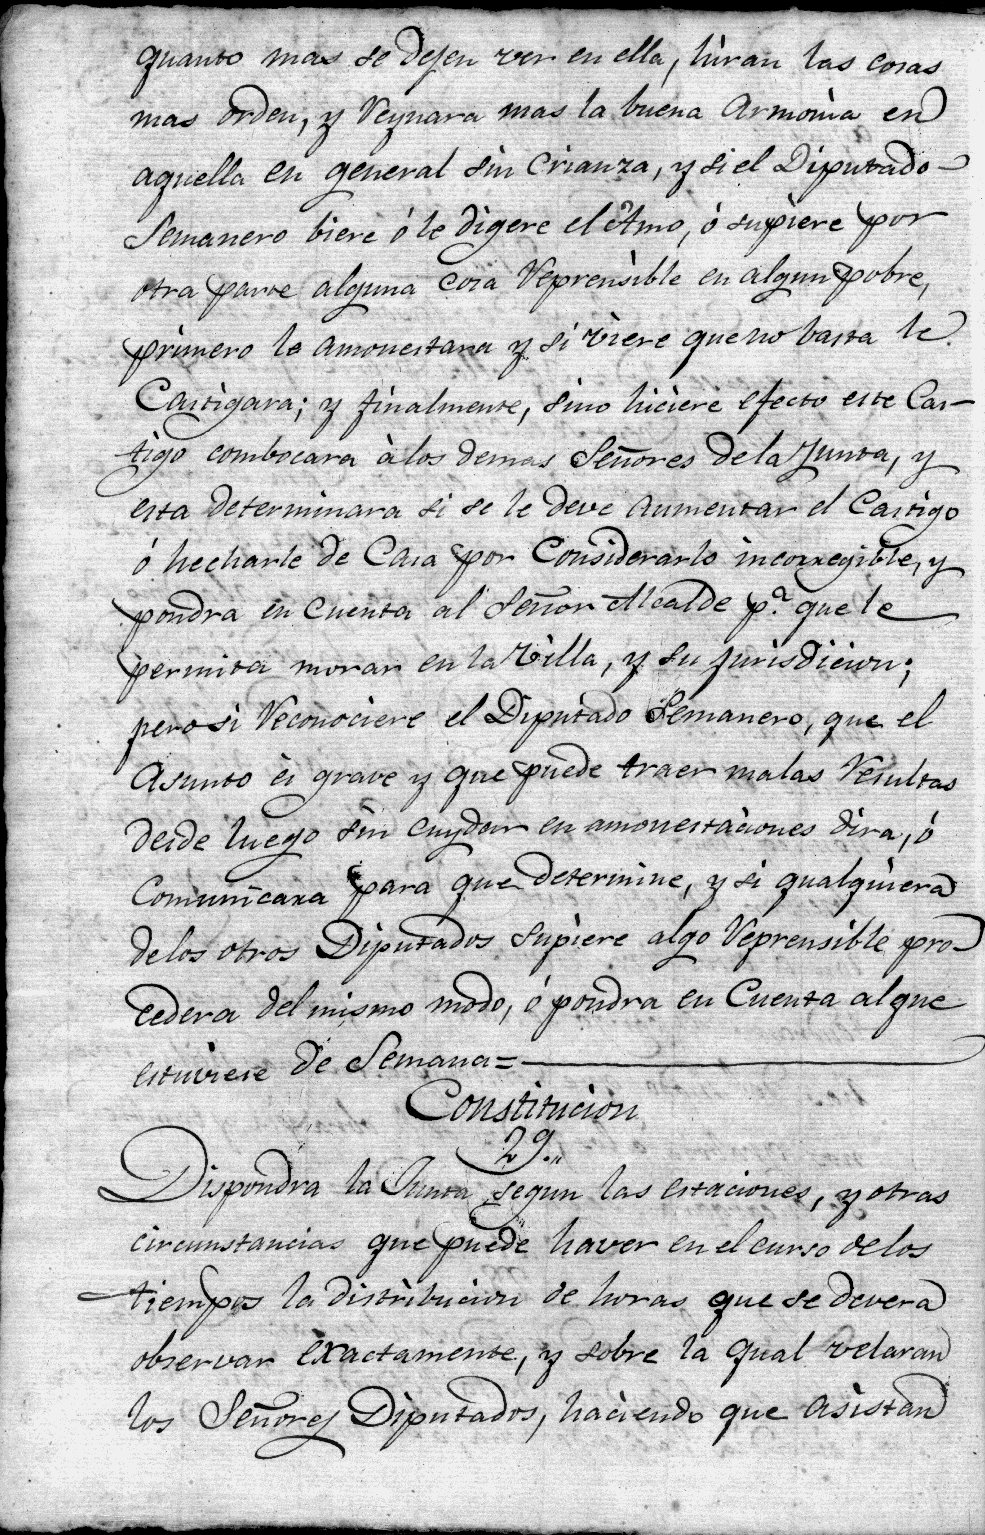 quanto mas se dejen ver en ella, hiran las cosas
mas orden, y Reynara mas la buena Armonia en
aquella en general sin Crianza, y si el Diputado
Semanero biere ó le digere el Amo, ó supiere por
otra parte alguna cosa Reprensible en algun pobre,
primero le amonestara y si viere que no basta le
Castigara; y finalmente, sino hiciere efecto este Cas-
tigo combocara à los demas Señores de la Junta, y
esta determinara si se le deve aumentar el Castigo
ó hecharle de Casa por Considerarlo incorregible, y
pondra en cuenta al Señor Alcalde p.ª que le
permita morar en la Villa, y su jurisdicion;
pero si Reconociere el Diputado Semanero, que el
Asunto és grave y que puede traer malas Resultas
desde luego sin cuydar en amonestaciones dira, ó
Comunicara para que determine, y si qualquiera
de los otros Diputados supiere algo Reprensible pro-
cedera del mismo modo, ó pondra en Cuenta al que
estuviere de Semana=
Constitucion
29.
Dispondra la Junta segun las estaciones, y otras
circunstancias que puede haver en el curso de los
tiempos la distribucion de horas que se devera
observar exactamente, y sobre la qual velaran
los Señores Diputados, haciendo que asistan